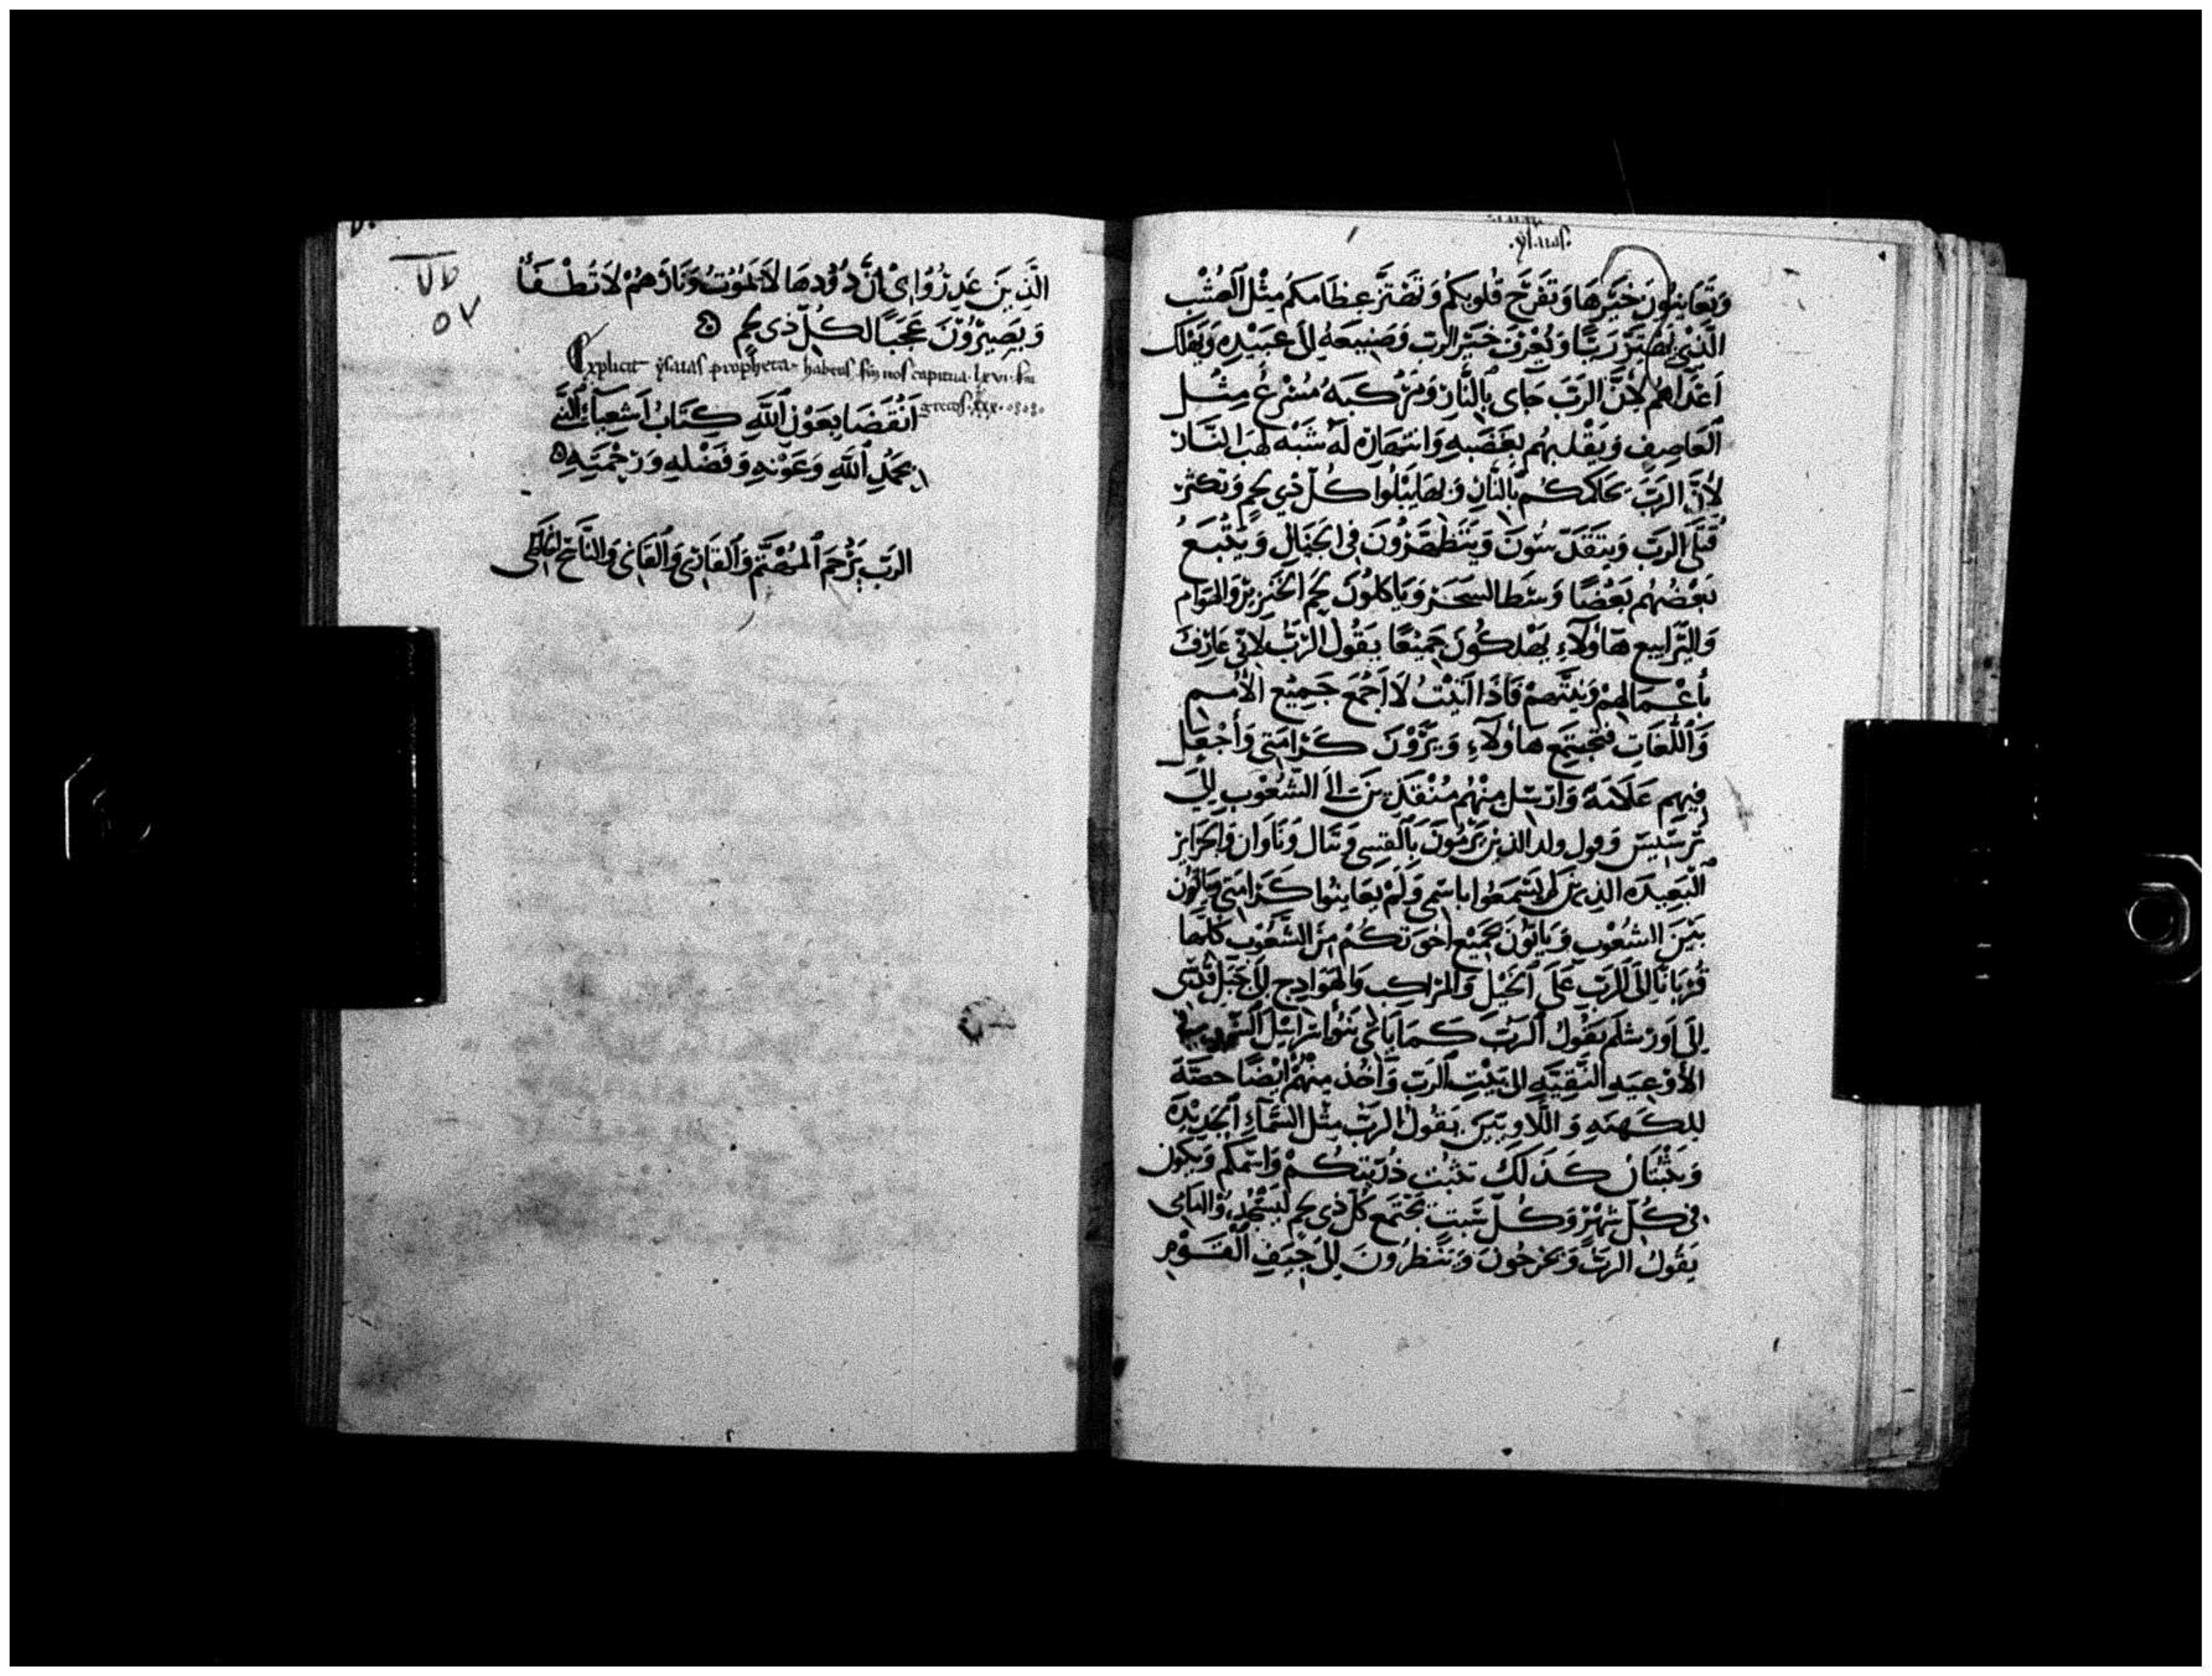 .ysaias.
وَتُعَاينُونَ خَيْرَهَا وَتَفْرَح قُلوبكُم وَتَهْتَزّ عِظَامكم مِثْل الْعُشْب
الَّذِي رَبًّا وَيُعْرَف خَيْر الرب وَصَنِيعَهُ الى عَبِيْدِهِ وَيَهْلَك
اَعْدَاهُم لاِنَّ الرَبّ جَاى بِالنَّارِ وَمَرْكَبَهُ مُسْرِعُ مِثْل
الْعَاصِفِ وَيَقْلبهُم بِغَضَبِهِ وَانتهَارِه لَهُ شَبْه لهَب النَّار
لاَنَّ الرَبَّ يحَاكمكُم بِالنَّارِ وَبِهَا يَبْلُوا كُلّ ذي لحم وَتكثر
قَتْلَى الرَبّ وَيتَقَدّسُونَ وَيَتَطَهَّرُونَ فى الجبَالِ وَيَتْبَعُ
بَعْضُهُم بَعْضًا وَسَطَ السَحَر وَيَاكلوُنَ لحم الخنزِيْر وَالهَوَام
وَاليَرَابيع هَاوُلَآءِ يَهْلكُونَ جَمِيْعًا يَقُولُ الرَبّ لاِنّى عَارِفَ
بأعْمَالِهِمْ وَنِيَّتهِمْ فَاذَا اتَيْتُ لاَجْمَعَ جَمِيْع الأُمَم
وَاللُّغَاتِ فتَجْتَمِع هَاوُلآءِ وَيَرَوْنَ كَرَامَتِي وَأَجْعَل
فِيهِم عَلَامَةً وَارْسل مِنْهُم مُنْقَلِبِيْنَ الى الشُعُوْبِ الى
تَرسِيسَ وَفول ولد الذين يَرْمُونَ بِالْقسِى وَتبَال وَنَاوَان وَالْجَزَاير
الْبَعِيده الذِينَ لَم يَسْمَعُوا باسْمِي وَلَمْ يعَاينُوا كَرَامَتي وَيَاتُون
بَيْنَ الشُعُوْبِ وَيَاتُوْنَ بجَمِيْع اخوَتكُمْ مِنَ الشُّعُوْبِ كُلّهَا
قُرْبَانًا الى الرَبّ عَلَى الخَيْلِ وَالمرَاكب وَالهَوَادِج الى جَبَلِ قُدْسى
الَى اَورْشلم يَقُولُ الرَبّ كَمَا يَاتى بَنُوا اسرَايل
الأَوْعِيَه النَّقِيَّه الى بَيْتِ الرَبّ وَآخُذ مِنْهُمْ اَيْضًا حصَّةً
للكَهنَهِ وَاللَّاوِيّيْنَ يَقُولُ الرَبّ مِثْلُ السَّمَاءِ الجَدِيْدَه
وَيَثْبتَانِ كَذَلكَ تثبُت ذُرِّيتكُمْ وَاسْمكم وَيكون
فى كُلّ شَهْرٍ وَكُلّ سَبتٍ يجْتَمع كُلّ ذِى لحمٍ ليَسْجُدُوْا اَمَامى
يَقُولُ الرَبّ وَيَخْرُجُونَ وَيَنظرُونَ الى جِيَفِ الْقَوْمِ
الَّذِيْنَ غَدِرُوا بى لأَنَّ دُوْدهَا لاَ يَمُوتُ وَنَارَهُمْ لاَ تُطْفَأُ
وَيَصِيْرُوْنَ عَجَبًا لكُلّ ذِى لحمٍ
Explicit ysaias propheta habens secundum nos capitula .lxvi. secundum
grecos .xxx.
انْقَضَا بِعَوْنِ اللَّهِ كِتَابُ اَشَعِيَآء النَّبي
بحَمْدِ اللَّهِ وَعَوْنِهِ وَفَضْلِهِ وَرَحْمَتِهِ
الرَبّ يَرْحَم المُهْتَمّ وَالقَارِى وَالنَّاسخ